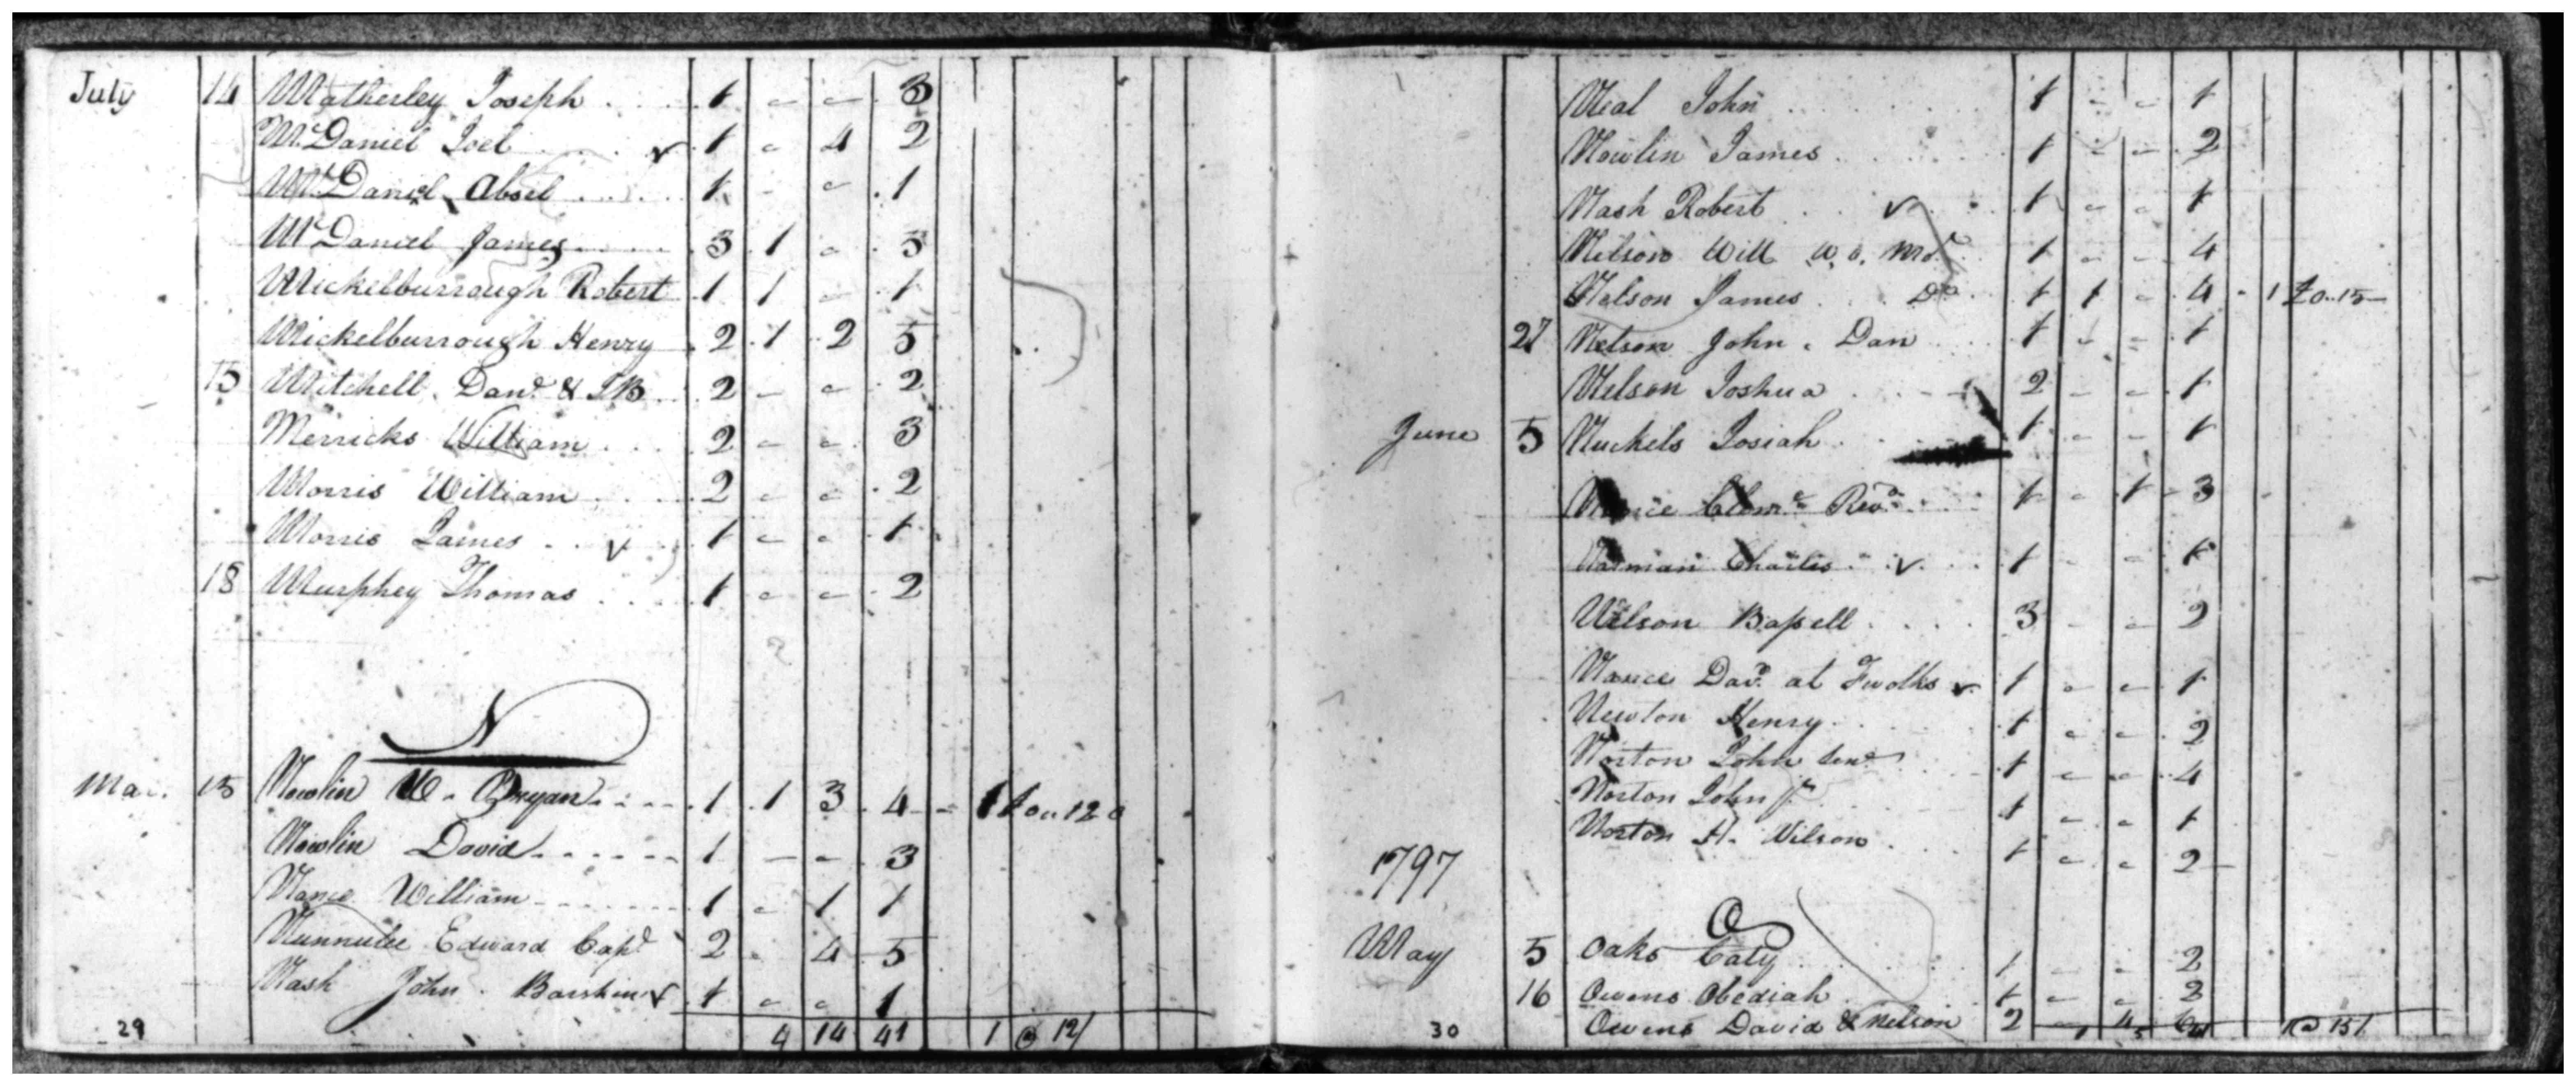 July 14 Matherley Joseph . . . . 1 - - 3
McDaniel Joel . . . . v 1 - 4 2
McDaniel Absel . . . . 1 - - 1
McDaniel James . . . . 3 1 - 3
Mickelburrough Robert 1 1 - 1
Mickelburrough Henry 2 1 2 5
15 Mitchell Dand & 2 - - 2
Merricks William . . . . 2 - - 3
Morris William . . . . 2 - - 2
Morris James . . v . 1 - - 1
18 Murphey Thomas . . . . 1 - - 2
N
Mar. 15 Nowlin W. Bryan . . . . 1 1 3 4 - 1 £0 .. 12 0
Nowlin David . . . . . . 1 - - 3
Nance William . . . . . . 1 - 1 1
Nunnulee Edward Capt 2 - 4 5
Nash John . v 1 - - 1
29 4 14 41 1 @ 12/
Neal John . . . . 1 - - 1
Nowlin James . . . . 1 - - 2
Nash Robert . . v . 1 - - 1
Nelson Will W. o. Md. 1 - - 4
Nelson James . . Do . 1 1 - 4 - 1 £0 .. 15 -
27 Nelson John . Dan . . 1 - - 1
Nelson Joshua . . . . 2 - - 1
June 5 Nuckels Josiah . . 1 - - 1
Nance Clemt Revd . . . 1 - 1 3
Norman Charles . . v . . 1 - - 1
Nelson Bassell . . . . 3 - - 2
Nance Davd at v 1 - - 1
Newton Henry . . . 1 - - 2
Norton John Senr . . 1 - - 4
Norton John Jr . . 1 - - 1
Norton H. Wilson . . . 1 - - 2
1797
O
May 5 Oaks Caty . . . . 1 - - 2
16 Owens Obediah . . . 1 - - 2
Owens David & Nelson 2 - 4
30 1 5 1 @ 15/